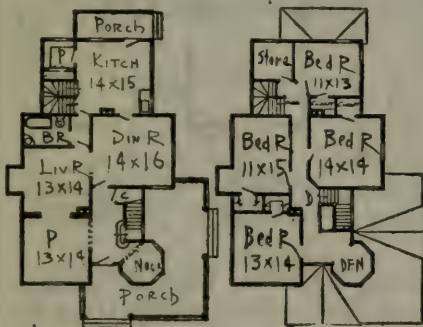 Porch
P
KITCH
14x15
BR
DIN R
14x16
LIV R
13x14
C
P
13x14
NOOK
PORCH
Store
Bed R
11x13
Bed R
11x15
Bed R
14x14
D
Bed R
13x14
DEN